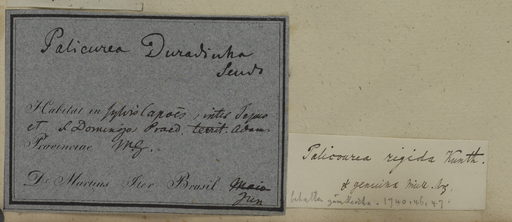 Palicurea Duradinha
Habitat in sylvis Capoës, inter Tejuco
et S. Domingo, Praed. territ. Adam.
Provinciae
D. Martius Iter Brasil Maio
Jun
Palicourea rigida Kunth.
genuina Müll. Arg.
1740. 46. 47.